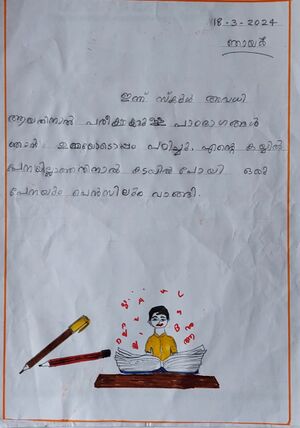 18-3-2024
ഞായർ
ഇന്ന് സ്കൂൾ അവധി
ആയതിനാൽ പരീക്ഷക്കുള്ള പാഠഭാഗങ്ങൾ
ഞാൻ ഉമ്മയോടൊപ്പം പഠിച്ചു. എന്റെ കയ്യിൽ
പേനയില്ലാത്തതിനാൽ കടയിൽ പോയി ഒരു
പേനയും പെൻസിലും വാങ്ങി.